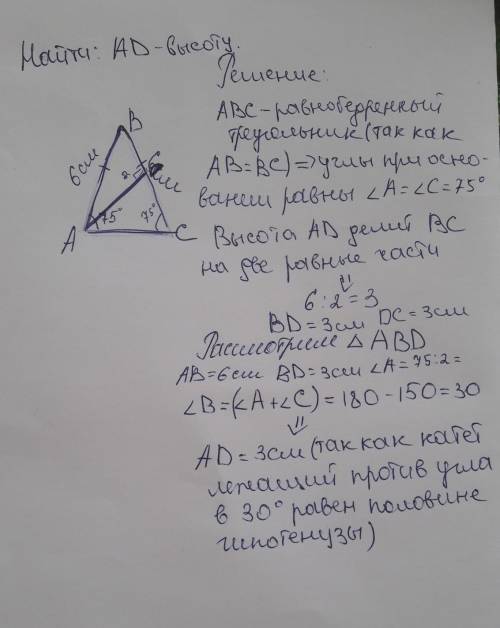 Найти: AD-высоту.
Решение:
ABC-равнобедренный
треугольник (так как
AB=BC) =>углы при осно-
вании равны ∠A=∠C=75°
Высота AD делит BC
на две равные части
⇓
6:2=3
BD=3см DC=3см
Рассмотрим △ABD
AB=6см BD=3см ∠A=75:2=
∠B=(∠A+∠C)=180-150=30
⇓
AD=3см (так как катет
лежащий против угла
в 30° равен половине
гипотенузы)
B
6см
6
см
75°
75°
A
C